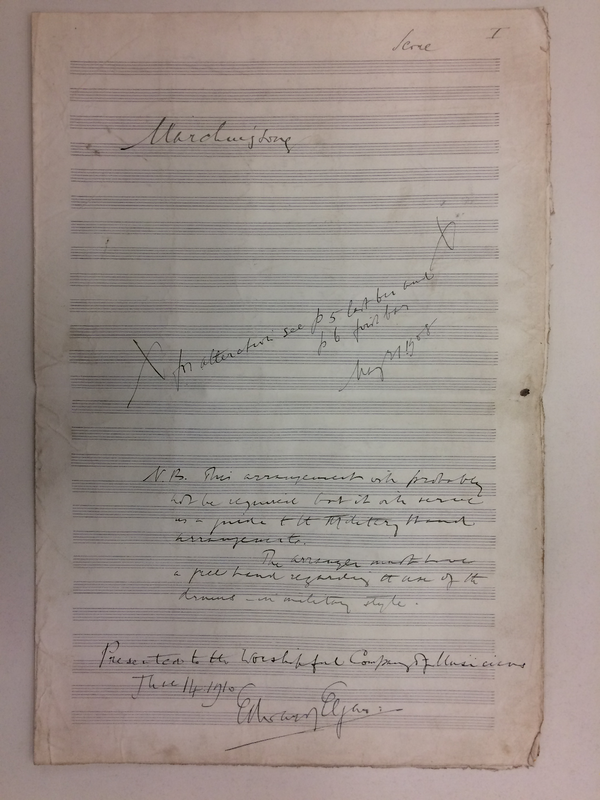 Score
I
Marching Song
X for alteration see p 5 last bar and X
p 6 first bar
May 21 1908
N.B. This arrangement will probably
not be required but it will serve
as a guide to the Military Band
arrangements.
The arranger must have
a free hand regarding the use of the
drums - in military style.
Presented to the Worshipful Company of Musicians
June 14. 1910
Edward Elgar